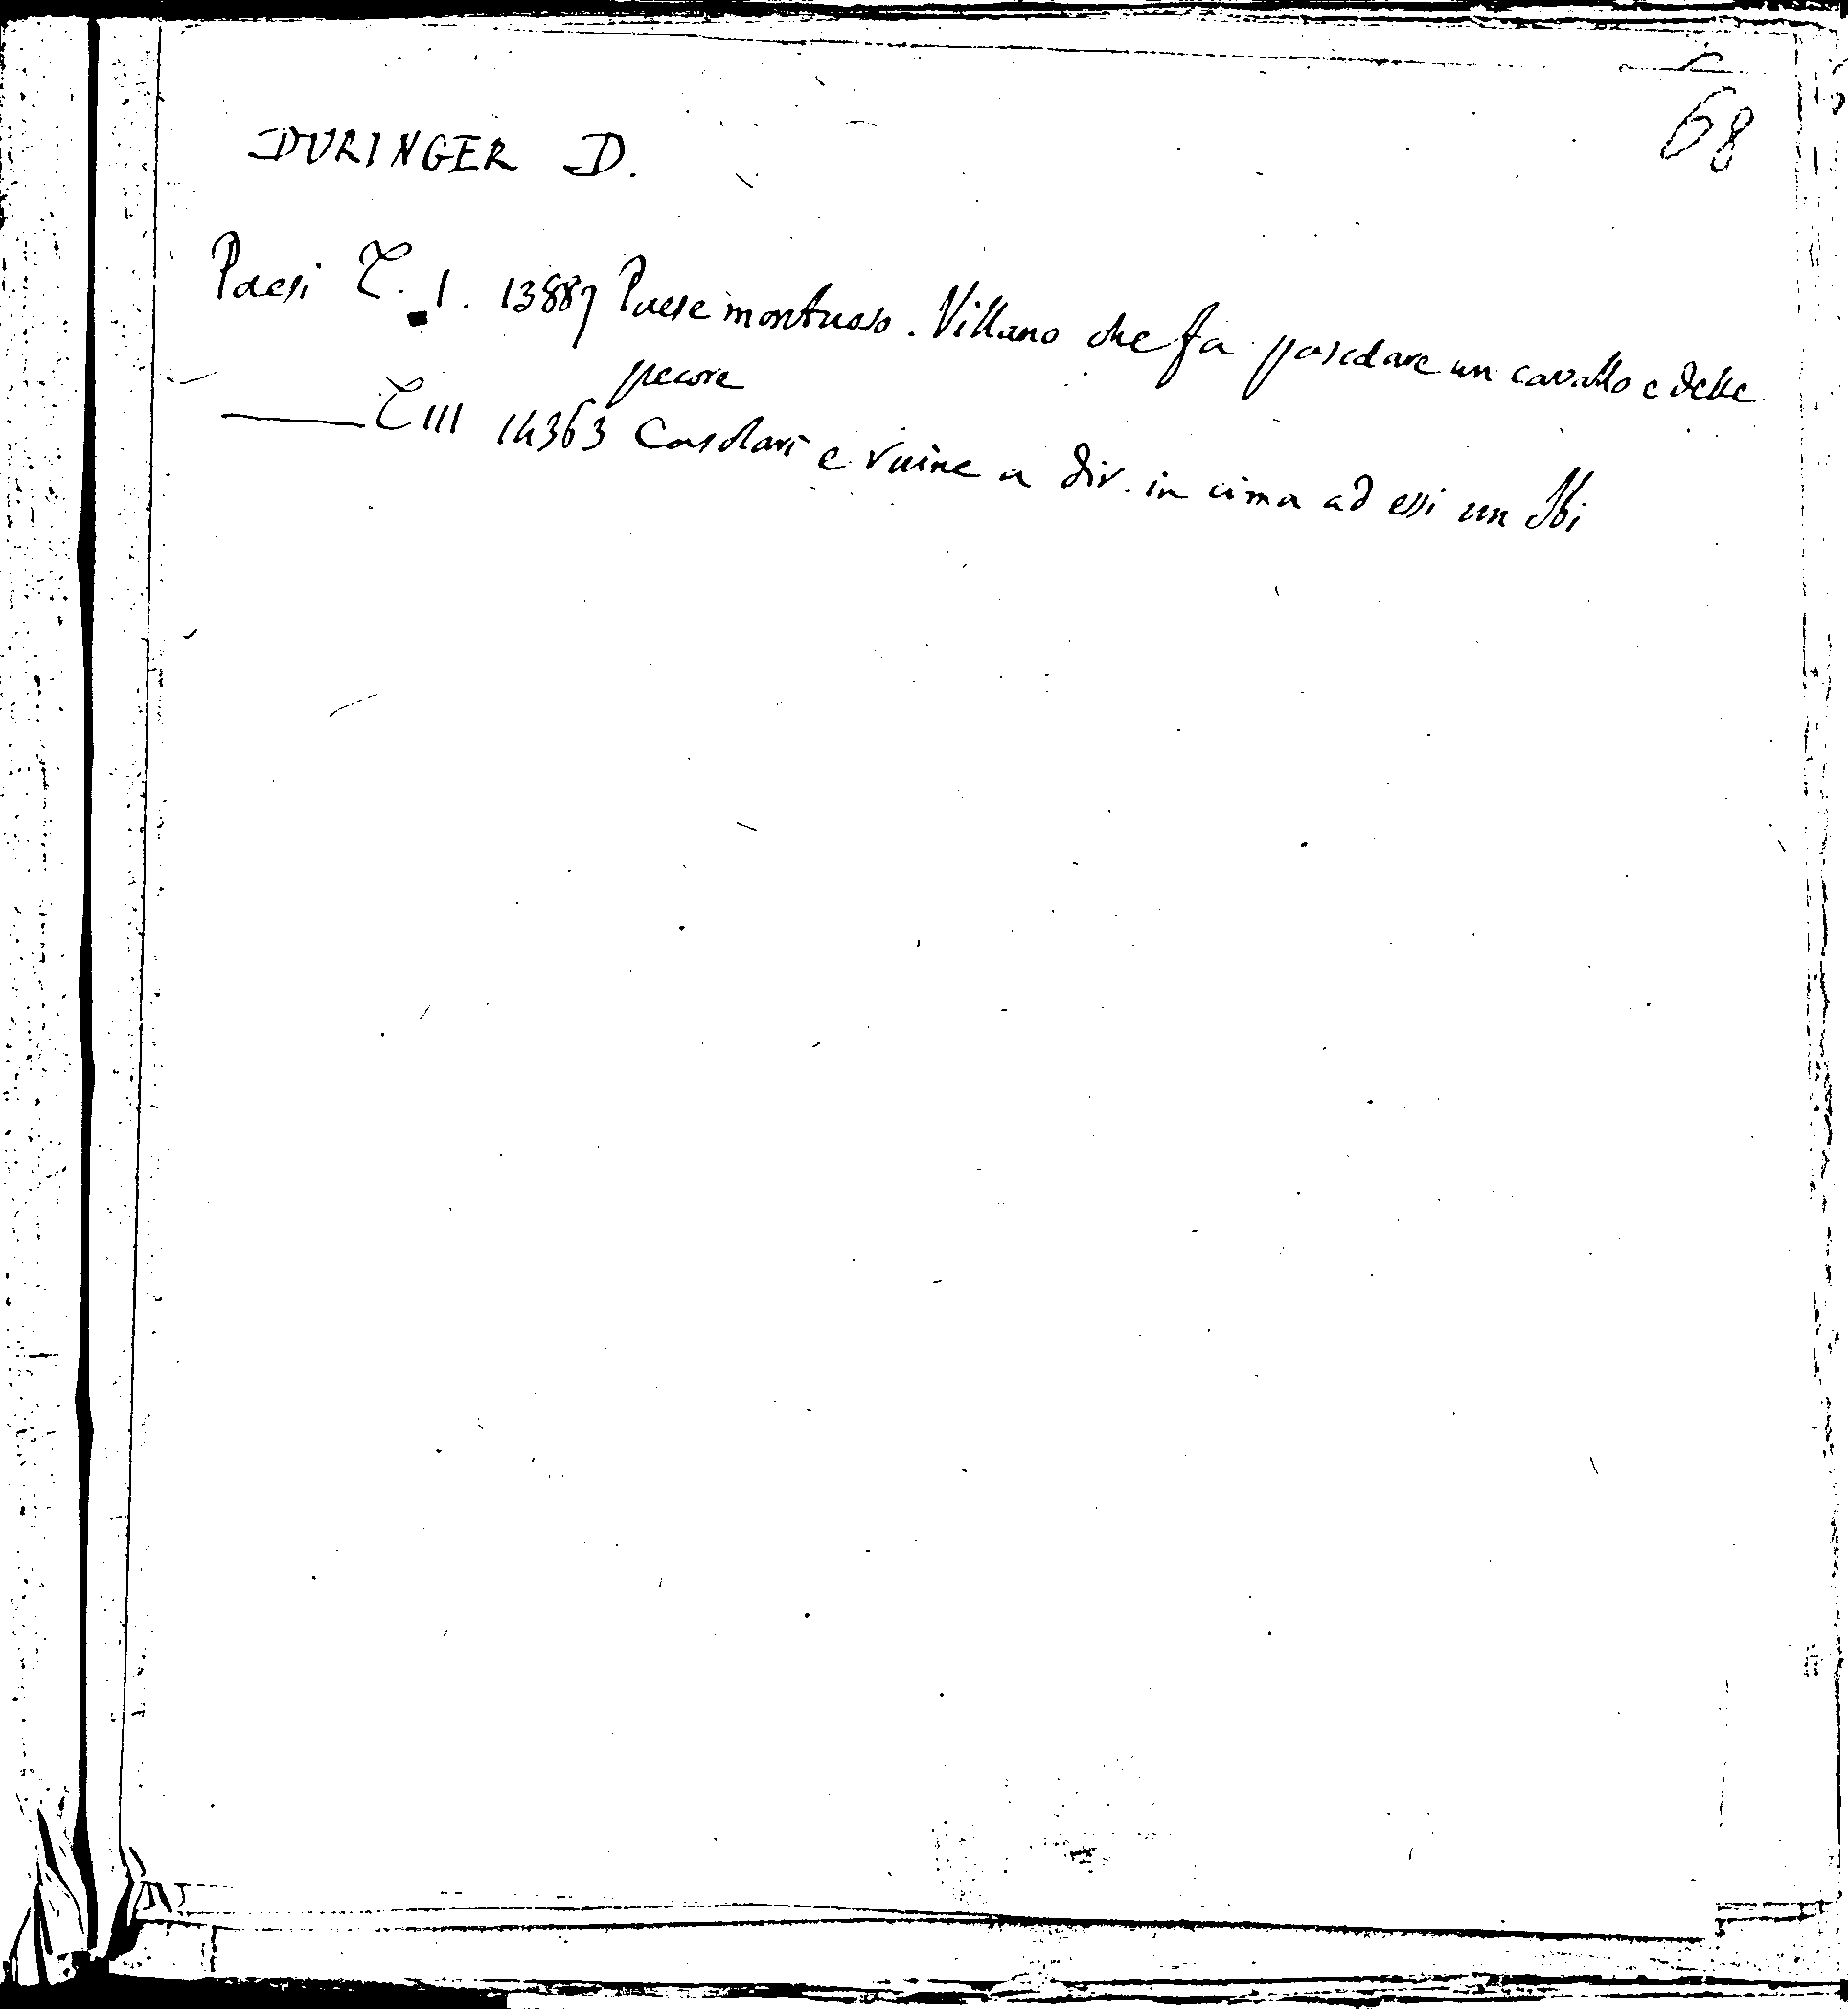 68
DURINGER D.
Paesi T. I. 13887 Paese montuoso. Villano che fa pascolare un cavallo e delle
pecore
—— T III 14363 Casolari e ruine a dir. in cima ad essi un Ibi